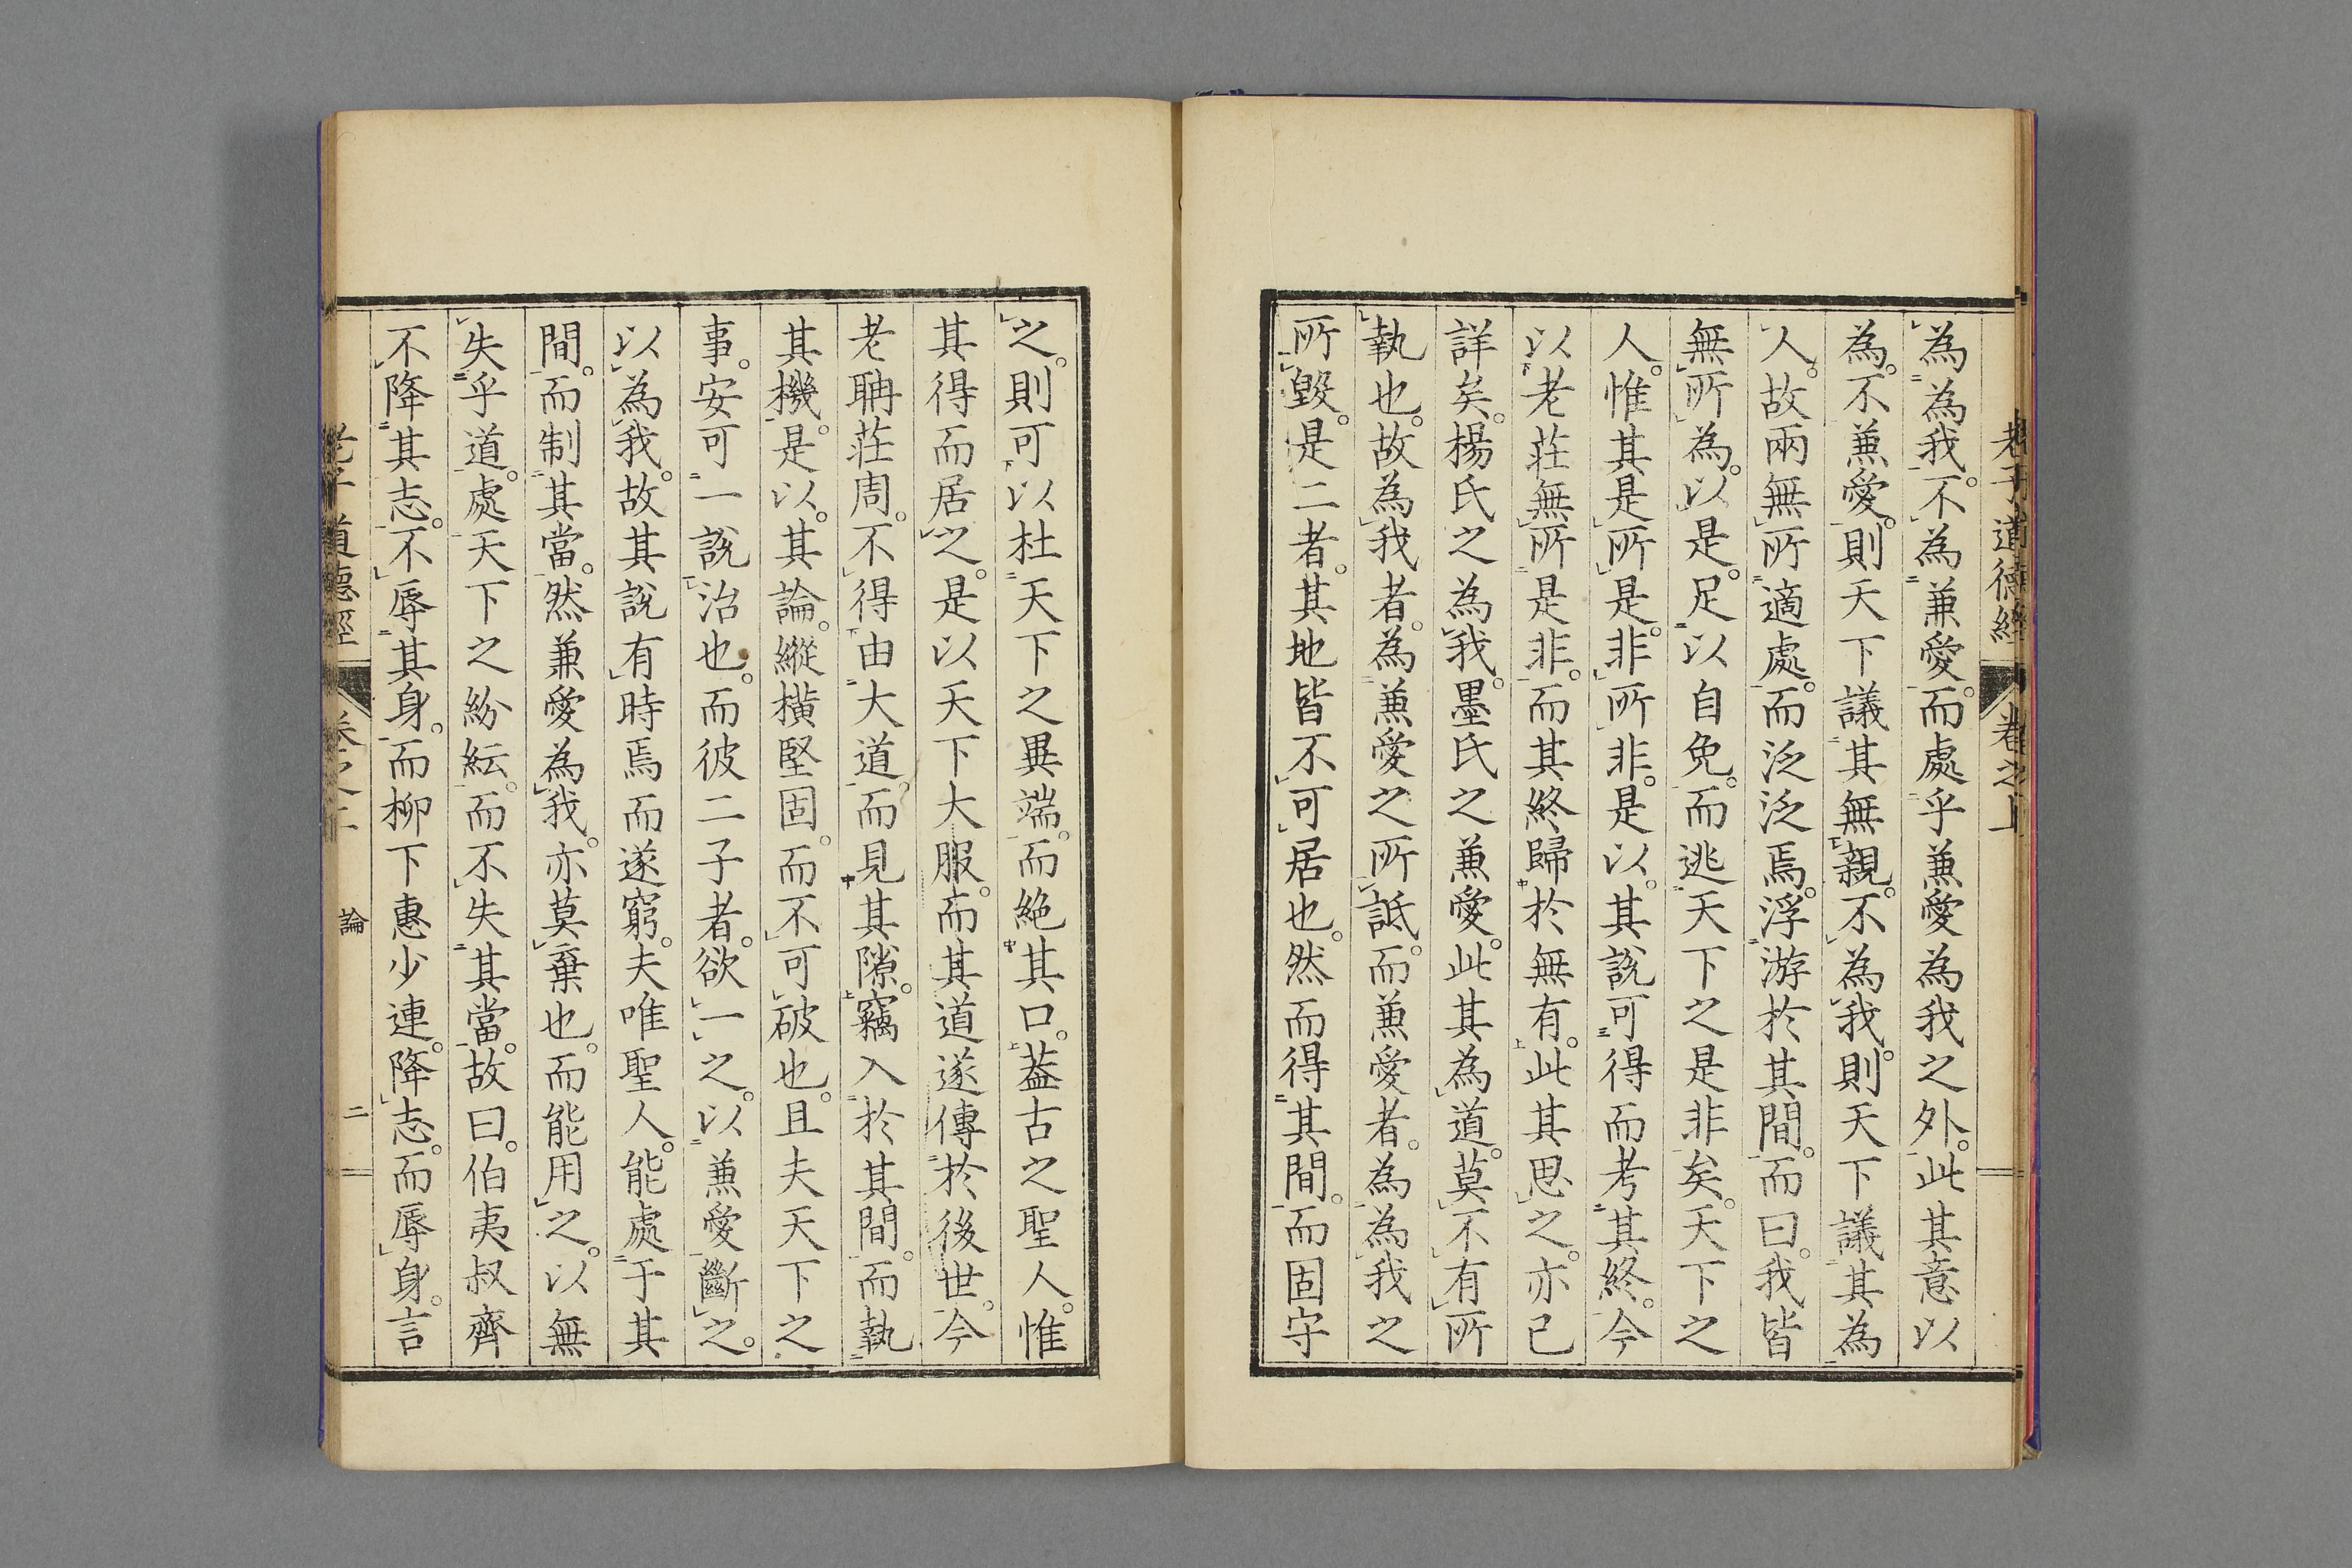 老子道德經 卷之上
為為我。不為兼愛。而處乎兼愛為我之外。此其意以
為。不兼愛。則天下議其無親。不為我。則天下議其為
人。故兩無所適處。而泛泛焉。浮游於其間。而曰。我皆
無所為。以是。足以自免。而逃天下之是非矣。天下之
人。惟其是所是。非所非。是以。其說可得而考其終。今
以老莊無所是非。而其終歸於無有。此其思之。亦已
詳矣。楊氏之為我。墨氏之兼愛。此其為道。莫不有所
執也。故為我者。為兼愛之所詆。而兼愛者。為為我之
所毀。是二者。其地皆不可居也。然而得其間。而固守
之。則可以杜天下之異端。而絕其口。蓋古之聖人。惟
其得而居之。是以天下大服。而其道遂傳於後世。今
老聃莊周。不得由大道。而見其隙。竊入於其間。而執
其機。是以。其論。縱橫堅固。而不可破也。且夫天下之
事。安可一說治也。而彼二子者。欲一之。以兼愛斷之。
以為我。故其說有時焉而遂窮。夫唯聖人。能處于其
間。而制其當。然兼愛為我。亦莫棄也。而能用之。以無
失乎道。處天下之紛紜。而不失其當。故曰。伯夷叔齊
不降其志。不辱其身。而柳下惠少連。降志。而辱身。言
老子道德經 卷之上 論 二